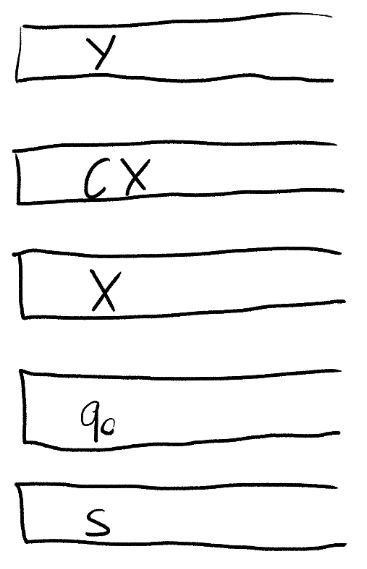 Y
CX
X
q₀
S